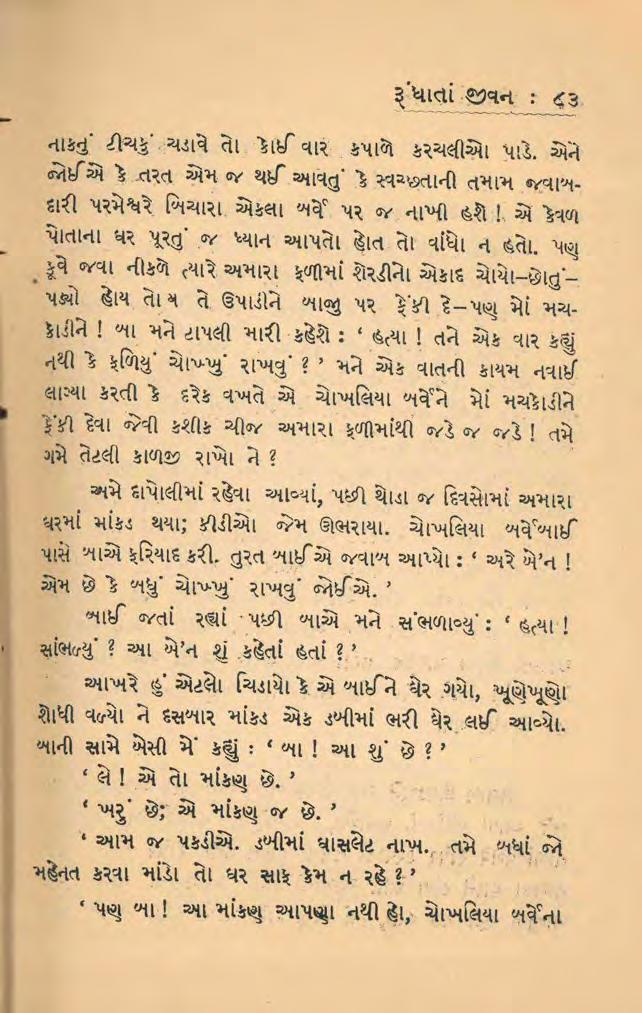 રૂંધાતાં જીવન : ૮૩
નાકનું ટીચકું ચડાવે તો કોઈ વાર કપાળે કરચલીઓ પાડે. એને
જોઈએ કે તરત એમ જ થઈ આવતું કે સ્વચ્છતાની તમામ જવાબ-
દારી પરમેશ્વરે બિચારા એકલા બર્વે પર જ નાખી હશે ! એ કેવળ
પોતાના ઘર પૂરતું જ ધ્યાન આપતો હોત તો વાંધો ન હતો. પણ
કૂવે જવા નીકળે ત્યારે અમારા ફળીમાં શેરડીનો એકાદ ચોયો–છોતું–
પડ્યો હોય તોય તે ઉપાડીને બાજુ પર ફેંકી દે–પણ મોં મચ-
કોડીને ! બા મને ટાપલી મારી કહેશે : ‘ હત્યા ! તને એક વાર કહ્યું
નથી કે ફળિયું ચોખ્ખું રાખવું ? ’ મને એક વાતની કાયમ નવાઈ
લાગ્યા કરતી કે દરેક વખતે એ ચોખલિયા બર્વેને મોં મચકોડીને
ફેંકી દેવા જેવી કશીક ચીજ અમારા ફળીમાંથી જડે જ જડે ! તમે
ગમે તેટલી કાળજી રાખો ને ?
અમે દાપોલીમાં રહેવા આવ્યાં, પછી થોડા જ દિવસોમાં અમારા
ઘરમાં માંકડ થયા; કીડીઓ જેમ ઊભરાયા. ચોખલિયા બર્વેબાઈ
પાસે બાએ ફરિયાદ કરી. તુરત બાઈએ જવાબ આપ્યો : ‘ અરે બે’ન !
એમ છે કે બધું ચોખ્ખું રાખવું જોઈએ. ’
બાઈ જતાં રહ્યાં પછી બાએ મને સંભળાવ્યું : ‘ હત્યા !
સાંભળ્યું ? આ બે’ન શું કહેતાં હતાં ? ’
આખરે હું એટલો ચિડાયો કે એ બાઈને ઘેર ગયો, ખૂણેખૂણો
શોધી વળ્યો ને દસબાર માંકડ એક ડબીમાં ભરી ઘેર લઈ આવ્યો.
બાની સામે બેસી મેં કહ્યું : ‘ બા ! આ શું છે ? ’
‘ લે ! એ તો માંકણ છે. ’
‘ ખરું છે; એ માંકણ જ છે. ’
‘ આમ જ પકડીએ. ડબીમાં ઘાસલેટ નાખ. તમે બધાં જો
મહેનત કરવા માંડો તો ઘર સાફ કેમ ન રહે ? ’
‘ પણ બા ! આ માંકણ આપણા નથી હો, ચોખલિયા બર્વેના